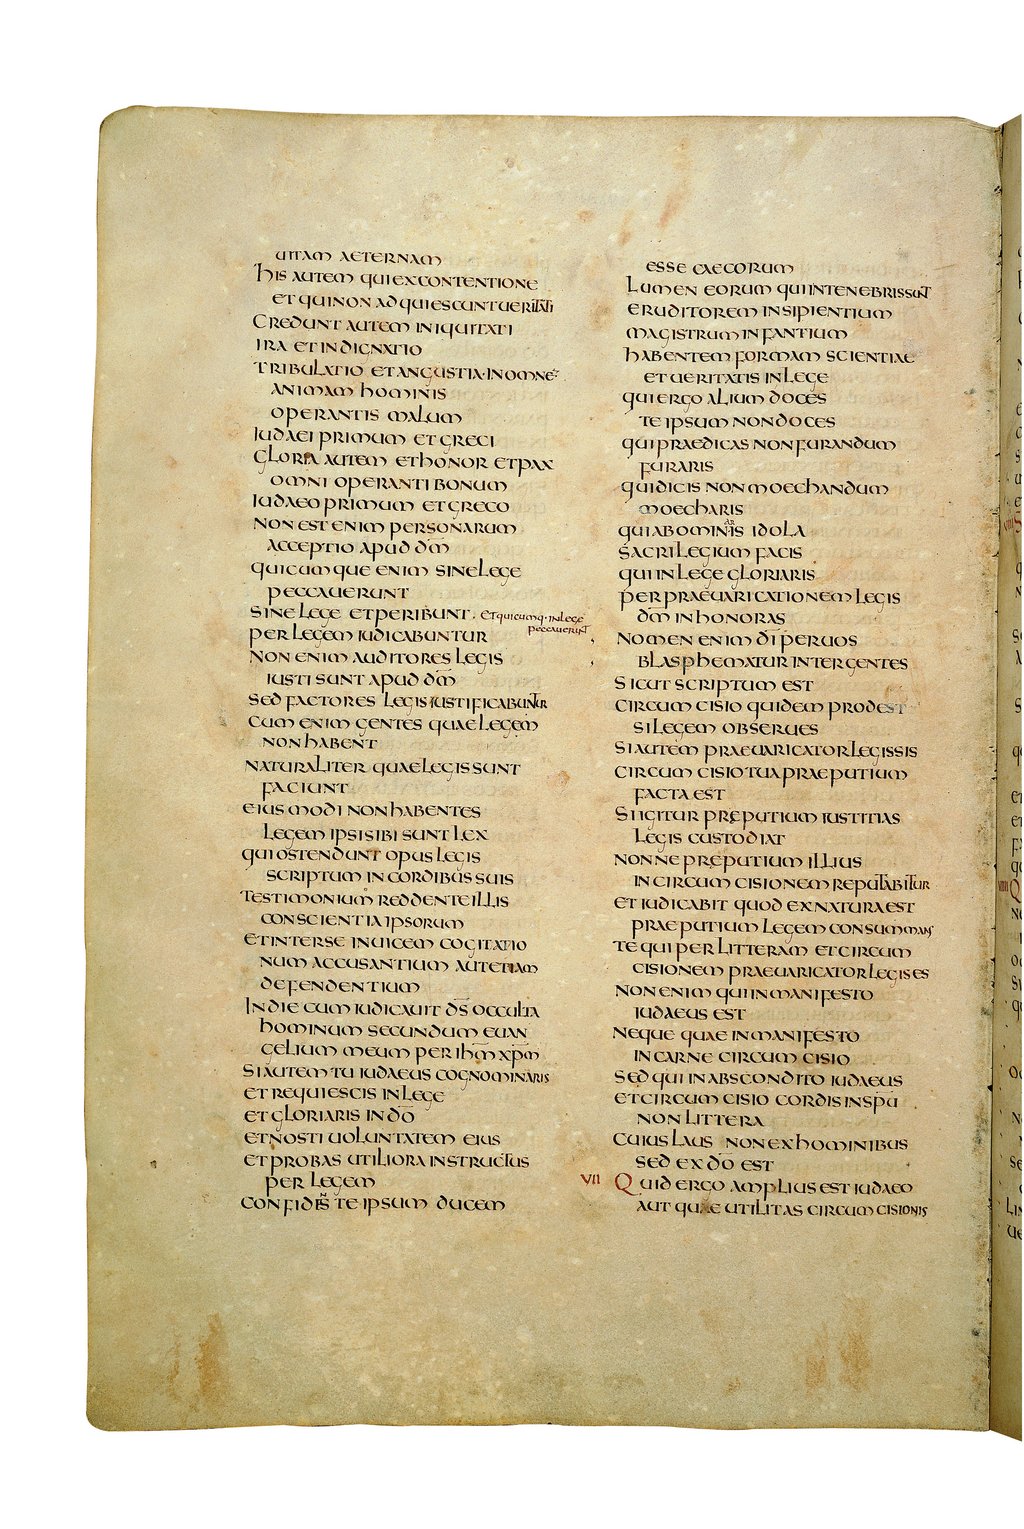 UITAM AETERNAM
HIS AUTEM QUI EX CONTENTIONE
ET QUI NON ADQUIESCUNT UERITATI
CREDUNT AUTEM INIQUITATI
IRA ET INDIGNATIO
TRIBULATIO ET ANGUSTIA · IN OMNE
ANIMAM HOMINIS
OPERANTIS MALUM
IUDAEI PRIMUM ET GRECI
GLORIA AUTEM ET HONOR ET PAX
OMNI OPERANTI BONUM
IUDAEO PRIMUM ET GRECO
NON EST ENIM PERSONARUM
ACCEPTIO APUD DM̅
QUICUMQUE ENIM SINE LEGE
PECCAUERUNT
SINE LEGE ET PERIBUNT · et quicumq· in lege
peccauerunt
PER LEGEM IUDICABUNTUR
NON ENIM AUDITORES LEGIS
IUSTI SUNT APUD DM̅
SED FACTORES LEGIS IUSTIFICABUNTUR
CUM ENIM GENTES QUAE LEGEM
NON HABENT
NATURALITER QUAE LEGIS SUNT
FACIUNT
EIUSMODI NON HABENTES
LEGEM IPSI SIBI SUNT LEX
QUI OSTENDUNT OPUS LEGIS
SCRIPTUM IN CORDIBUS SUIS
TESTIMONIUM REDDENTE ILLIS
CONSCIENTIA IPSORUM
ET INTER SE INUICEM COGITATIO
NUM ACCUSANTIUM AUT ETIAM
DEFENDENTIUM
IN DIE CUM IUDICAUIT DS̅ OCCULTA
HOMINUM SECUNDUM EUAN
GELIUM MEUM PER IHM̅ XPM̅
SI AUTEM TU IUDAEUS COGNOMINARIS
ET REQUIESCIS IN LEGE
ET GLORIARIS IN DO̅
ET NOSTI UOLUNTATEM EIUS
ET PROBAS UTILIORA INSTRUCTUS
PER LEGEM
CONFIDIS TE IPSUM DUCEM
ESSE CAECORUM
LUMEN EORUM QUI IN TENEBRIS SUNT
ERUDITOREM INSIPIENTIUM
MAGISTRUM INFANTIUM
HABENTEM FORMAM SCIENTIAE
ET UERITATIS IN LEGE
QUI ERGO ALIUM DOCES
TE IPSUM NON DOCES
QUI PRAEDICAS NON FURANDUM
FURARIS
QUI DICIS NON MOECHANDUM
MOECHARIS
QUI ABOMINARIS IDOLA
SACRILEGIUM FACIS
QUI IN LEGE GLORIARIS
PER PRAEUARICATIONEM LEGIS
DM̅ INHONORAS
NOMEN ENIM DI̅ PER UOS
BLASPHEMATUR INTER GENTES
SICUT SCRIPTUM EST
CIRCUMCISIO QUIDEM PRODEST
SI LEGEM OBSERUES
SI AUTEM PRAEUARICATOR LEGIS SIS
CIRCUMCISIO TUA PRAEPUTIUM
FACTA EST
SI IGITUR PREPUTIUM IUSTITIAS
LEGIS CUSTODIAT
NONNE PREPUTIUM ILLIUS
IN CIRCUMCISIONEM REPUTABITUR
ET IUDICABIT QUOD EX NATURA EST
PRAEPUTIUM LEGEM CONSUMMANS
TE QUI PER LITTERAM ET CIRCUM
CISIONEM PRAEUARICATOR LEGIS ES
NON ENIM QUI IN MANIFESTO
IUDAEUS EST
NEQUE QUAE IN MANIFESTO
IN CARNE CIRCUMCISIO
SED QUI IN ABSCONDITO IUDAEUS
ET CIRCUMCISIO CORDIS IN SPU̅
NON LITTERA
CUIUS LAUS NON EX HOMINIBUS
SED EX DO̅ EST
VII QUID ERGO AMPLIUS EST IUDAEO
AUT QUAE UTILITAS CIRCUMCISIONIS